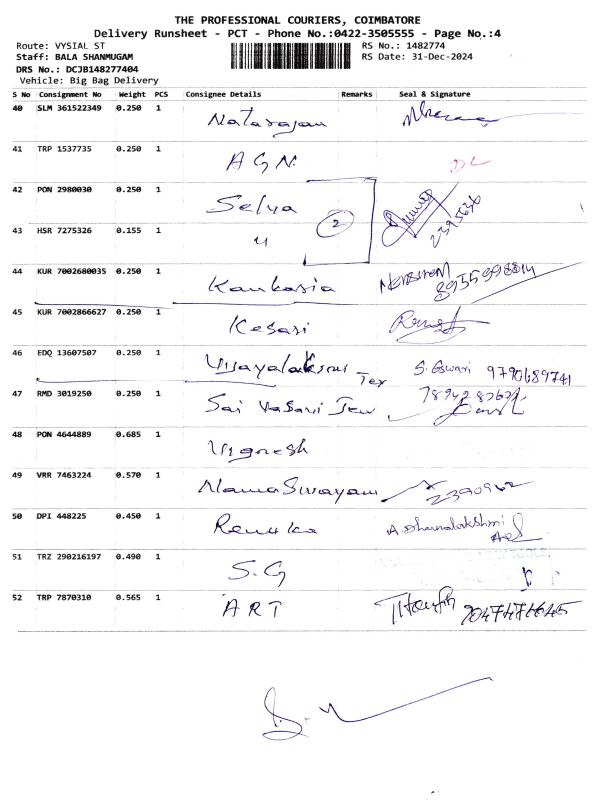 THE PROFESSIONAL COURIERS, COIMBATORE
Delivery Runsheet - PCT - Phone No.:0422-3505555 - Page No.:4
Route: VYSIAL ST RS No.: 1482774
Staff: BALA SHANMUGAM RS Date: 31-Dec-2024
DRS No.: DCJB148277404
Vehicle: Big Bag Delivery
S No Consignment No Weight PCS Consignee Details Remarks Seal & Signature
40 SLM 361522349 0.250 1 Natarajan
41 TRP 1537735 0.250 1 A G N. DL
42 PON 2980030 0.250 1 Selva 2 2395636
43 HSR 7275326 0.155 1 "
44 KUR 7002680035 0.250 1 Kankaria
45 KUR 7002866627 0.250 1 Kesari
46 EDQ 13607507 0.250 1 Vijayalaksmi Tex S. Eswari 9790689741
47 RMD 3019250 0.250 1 Sai Vasavi Jew
48 PON 4644889 0.685 1 Vignesh
49 VRR 7463224 0.570 1 Nama Sivayam 2390962
50 DPI 448225 0.450 1 Renuka A. Dhanalakshmi
51 TRZ 290216197 0.490 1 S.G
52 TRP 7870310 0.565 1 A R T